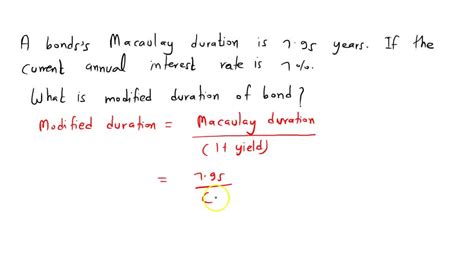 A bonds's Macaulay duration is 7.95 years. If the
current annual interest rate is 7%.
What is modified duration of bond?
Modified duration = Macaulay duration
(1+ yield)
= 7.95
(.